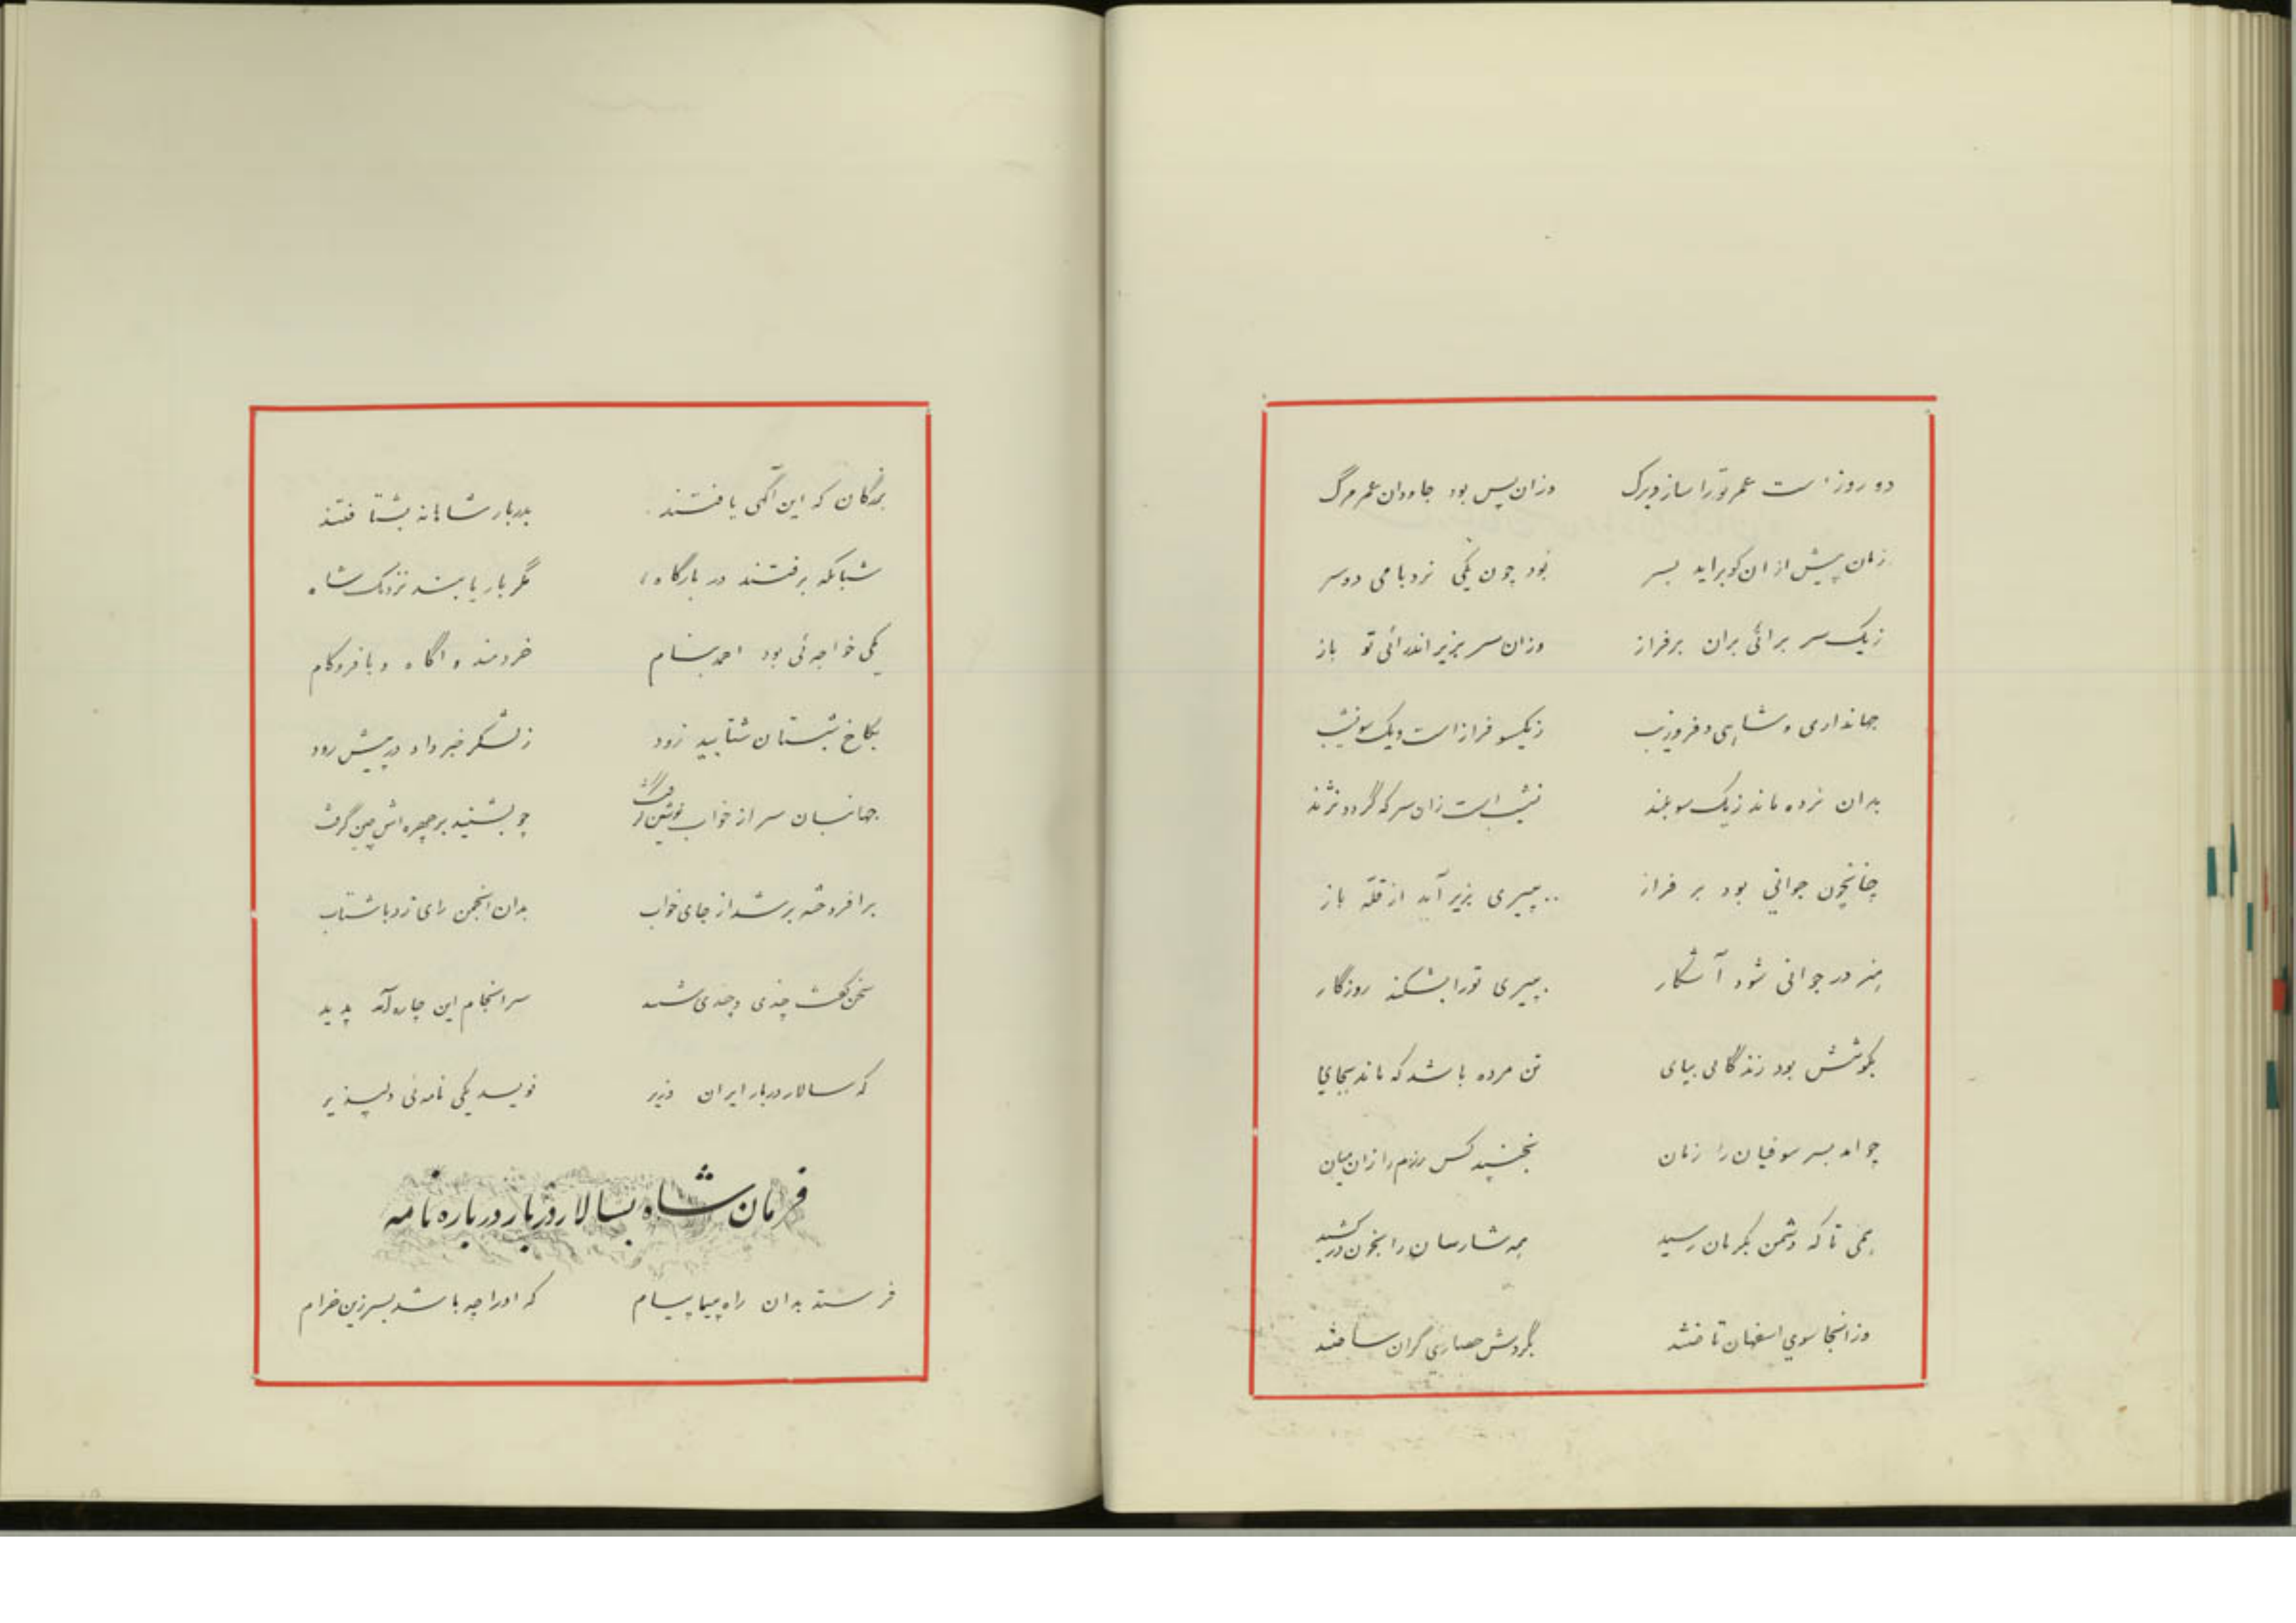 دو روز است عمر تو را ساز و برگ وزان پس بود جاودان عمر مرگ
زمان پیش از ان کو براید بسر بود چون یکی نردبامی دوسر
زیک سر برائی بران بر فراز وزان سر بزیر اندرائی تو باز
جهانداری و شاهی و فر و زیب زیکسو فراز است و یک سو نشیب
بدان نرده ماند زیک سو بلند نشیب است زان سر که گردد نژند
چنانچون جوانی بود بر فراز بپیری بزیر آید از قله باز
هنر در جوانی شود آشکار بپیری تو را بشکند روزگار
بکوشش بود زندگانی بپای تن مرده باشد که ماند بجای
چو امد بسر سوفیان را زمان نجنبید کس رزم را زان میان
همی تا که دشمن بکرمان رسید همه شارسان را بخون در کشید
وز انجا سوی اسفهان تاختند بگردش حصاری گران ساختند
بزرگان که این آگهی یافتند بدربار شاهانه بشتافتند
شبانگه برفتند در بارگاه مگر بار یابند نزدیک شاه
یکی خواجه ئی بود احمد بنام خردمند و اگاه و با فر و کام
بکاخ شبستان شتابید زود ز لشکر خبر داد در پیش رود
جهانبان سر از خواب نوشین گرفت چو بشنید بر چهره اش چین گرفت
برافروخته بر شد از جای خواب بدان انجمن رای زد با شتاب
سخن گفت چندی و چندی شنید سرانجام این چاره آمد پدید
که سالار دربار ایران وزیر نویسد یکی نامه ئی دلپذیر
فرمان شاه بسالار دربار درباره نامه
فرستد بدان راه پیما پیام که او را چه باشد بسر زین خرام